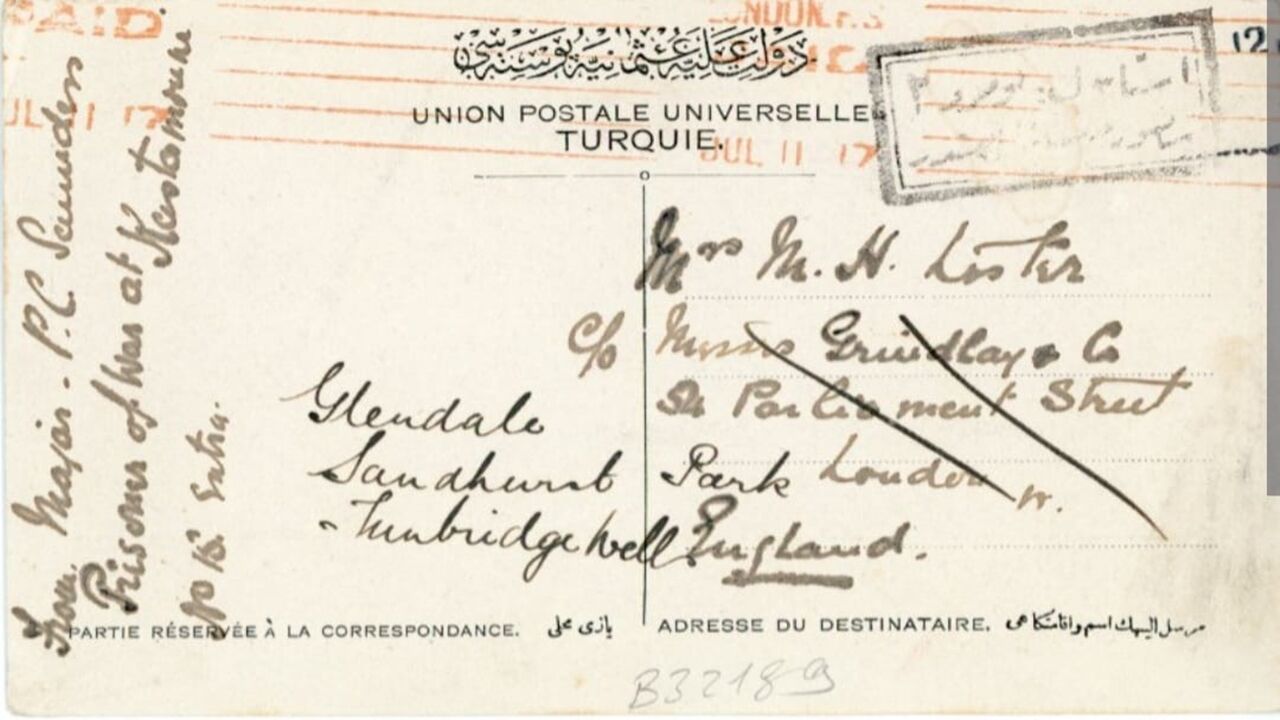 PAID
LONDON. F.S.
12
دولت علیه عثمانیه پوسته سی
UNION POSTALE UNIVERSELLE
TURQUIE.
JUL 11 17
JUL 11 17
From. Major. P.C Saunders
Prisoner of War at Kastamoune
Mrs M. H. Lister
c/o Messrs Grindlay & Co
54 Parliament Street
London
Glendale
Sandhurst Park
Tunbridge Well
England.
PARTIE RÉSERVÉE À LA CORRESPONDANCE. یازی محلی
ADRESSE DU DESTINATAIRE. مرسل الیهك اسم و اقامتكاهی
B32189